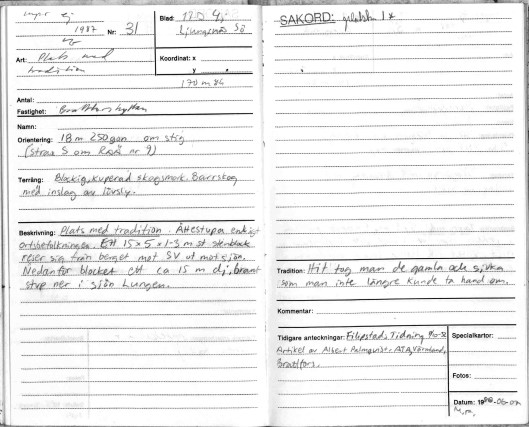 1987 Nr: 31
Art: Plats med
tradition
Blad: 12D 4j
Ljungsnäs SÖ
Koordinat: x
y
170 m
Antal:
Fastighet:
Namn:
Orientering: 18m 250gon om stig
(strax S om RAÄ nr 9)
Terräng: Blockig, kuperad skogsmark. Barrskog
med inslag av lövsly.
Beskrivning: Plats med tradition. Ättestupa enligt
ortsbefolkningen. Ett 15 x 5 x 1-3 m st stenblock
reser sig från berget mot SV ut mot sjön.
Nedanför blocket ett ca 15 m dj, brant
stup ner i sjön Lungen.
SAKORD:
Tradition: Hit tog man de gamla och sjuka
som man inte längre kunde ta hand om.
Kommentar:
Tidigare anteckningar: Filipstads Tidning
Artikel av Albert Palmqvist. ATA, Värmland,
Brattfors.
Specialkartor:
Fotos:
Datum: 19